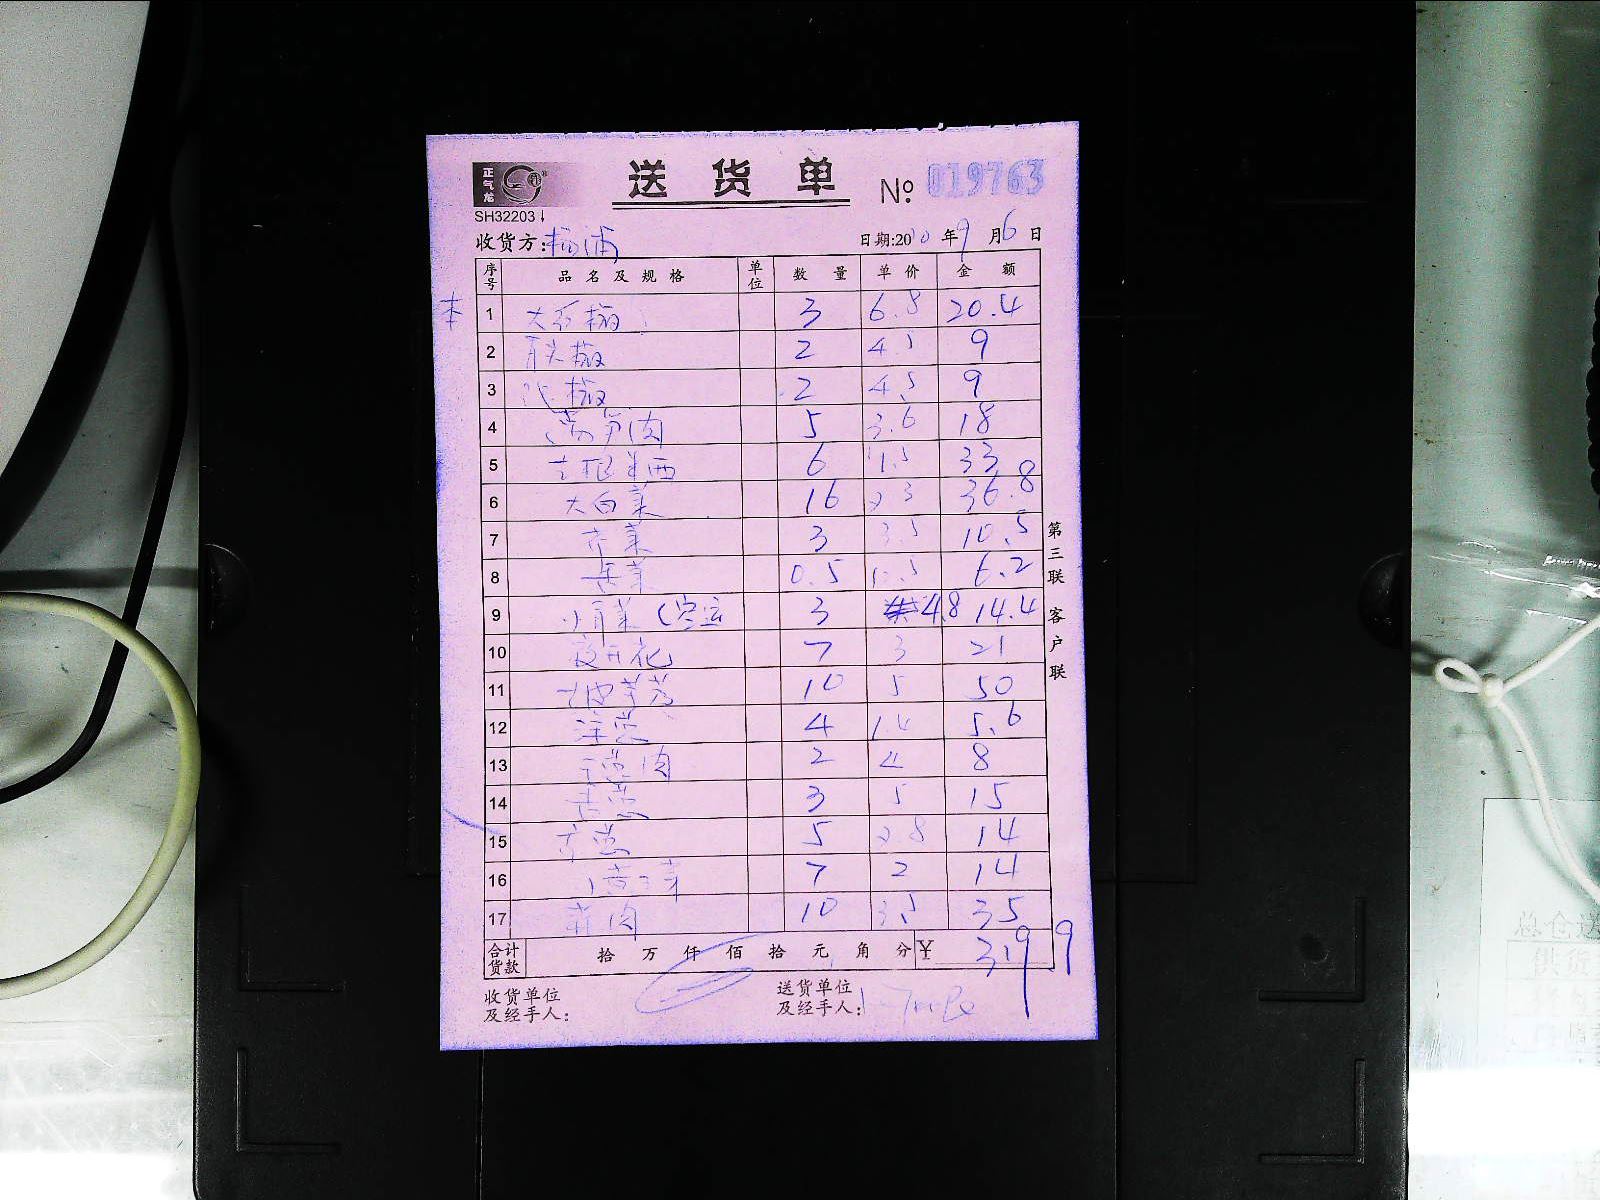 正气龙
送货单 № 019763
SH32203↓
收货方: 杨浦 日期:2020年9月6日
序号 品名及规格 单位 数量 单价 金额
本
1 大红椒 3 6.8 20.4
2 青尖椒 2 4.5 9
3 椒 2 4.5 9
4 莴笋肉 5 3.6 18
5 6 5.5 33
6 大白菜 16 2.3 36.8
7 芹菜 3 3.5 10.5
8 菜 0.5 12.5 6.2
9 小青菜(空运 3 4.8 14.4
10 夜开花 7 3 21
11 10 5 50
12 洋葱 4 1.4 5.6
13 肉 2 4 8
14 葱 3 5 15
15 5 2.8 14
16 7 2 14
17 肉 10 3.5 35
合计货款 拾 万 仟 佰 拾 元 角 分 ¥ 319.9
收货单位及经手人: 送货单位及经手人:
第三联 客户联
总仓送
供货